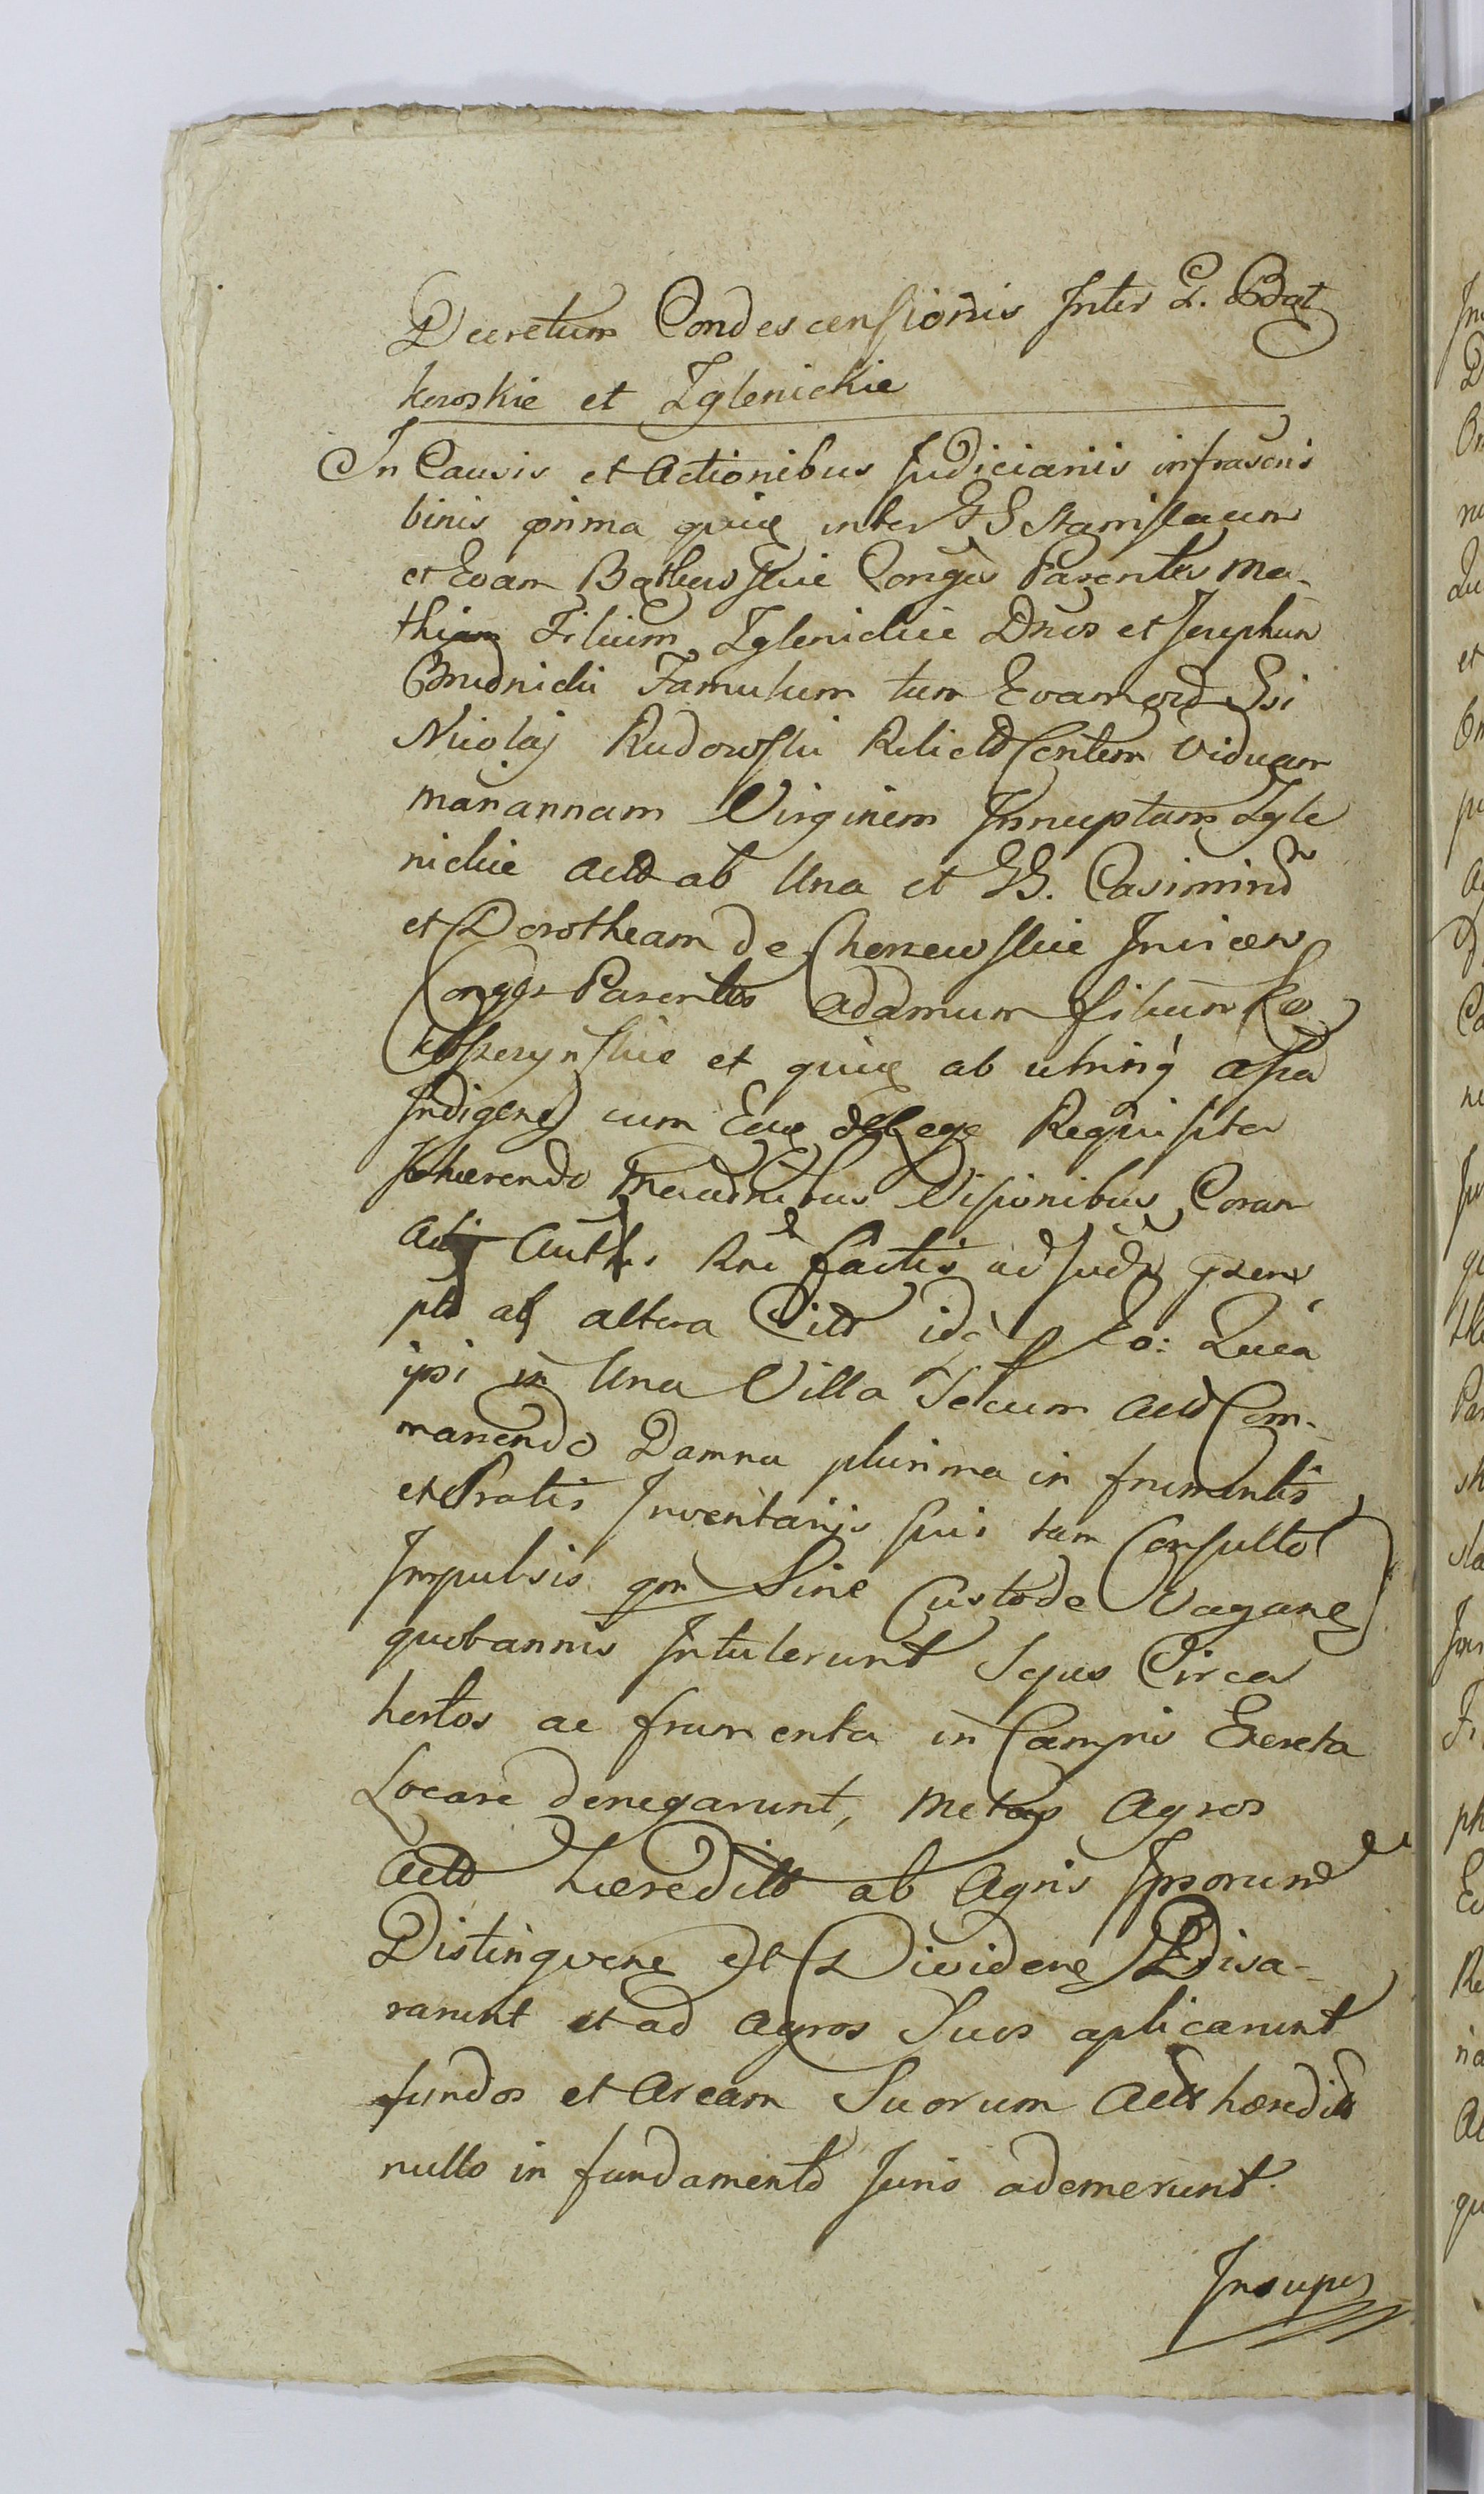 Decretum Condescensionis Inter G. Bąt
kowskie et Zglenickie
In Causis et Actionibus Judiciariis infrascri
binis prima quidẽ inter GG Stanislaum
et Evam Bątkowskie Conges Parentes Ma-
thiam Filium Zglenickie Dnos et Josephum
Brudnicki Famulum tum Evam Gd̃ Osi
Nicolaj Rudowski Relictã Contem Viduam
Mariannam Virginem Innuptam Zgle
nickie Act ab Una et GG. Casimirũ
et Dorotheam de Chorzewskie Invicem
Conges Parentes Adamum filium Ko
et quidẽ ab utrinq
Indigenas cum Eve de Lege Requisita
Inhærendo Visionibus Coram
Factis ad Judm
ab altera Citt idq Eo: Quia
ipsi in Una Villa Secum Act Com-
manendo Damna plurima in frumentis
et Pratis Inventarijs suis tam Consulto
Impulsis qm Sine Custode Vagare
quotannis Intulerunt Sepes Circa
hortos ac frumenta in Campis Erecta
Locare denegarunt, Metas Agros
Act Hæredit ab Agris Ipsorum
Distinguere et Dividere Disa-
rarunt et ad Agros Suos aplicarunt
fundos et Aream Suorum Act hæredit
nullo in fundamento Juris ademerunt.
Insuper